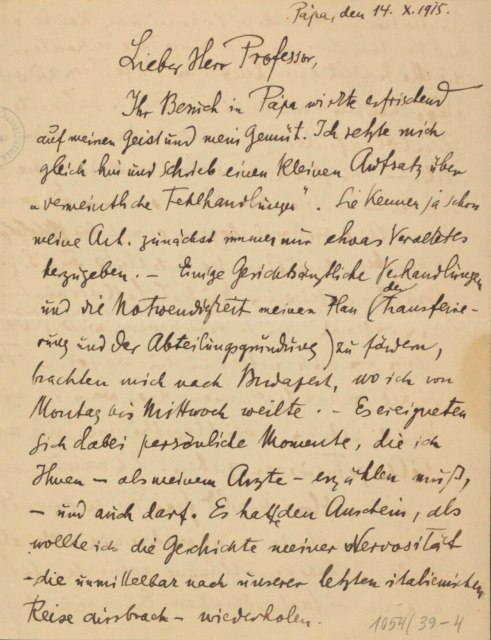 Pápa, den 14. X. 1915.
Lieber Herr Professor,
Ihr Besuch in Pápa wirkte erfrischend
auf meinen Geist und mein Gemüt. Ich setzte mich
gleich hin und schrieb einen kleinen Aufsatz über
„vermeintliche Fehlhandlungen“. Sie kennen ja schon
meine Art, zunächst immer nur etwas Veraltetes
herzugeben. — Einige Gerichtsärztliche Verhandlungen
und die Notwendigkeit meinen Plan (der Transferie-
rung und der Abteilungsgründung) zu fördern,
brachten mich nach Budapest, wo ich von
Montag bis Mittwoch weilte. — Es ereigneten
sich dabei persönliche Momente, die ich
Ihnen — als meinem Arzte — erzählen muß,
— und auch darf. Es hatte den Anschein, als
wollte ich die Geschichte meiner Nervosität
— die unmittelbar nach unserer letzten italienischen
Reise ausbrach — wiederholen.
1054/39-4